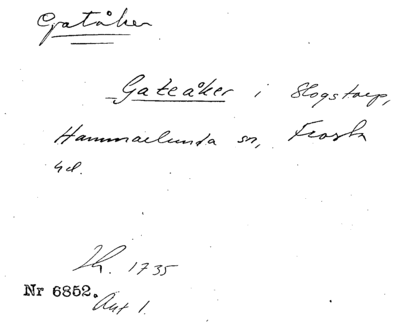 Gatåker
Gateåker i Slogstorp,
Hammarlunda sn, Frosta
hd.
Lh. 1735
Nr 6852.
Akt 1.